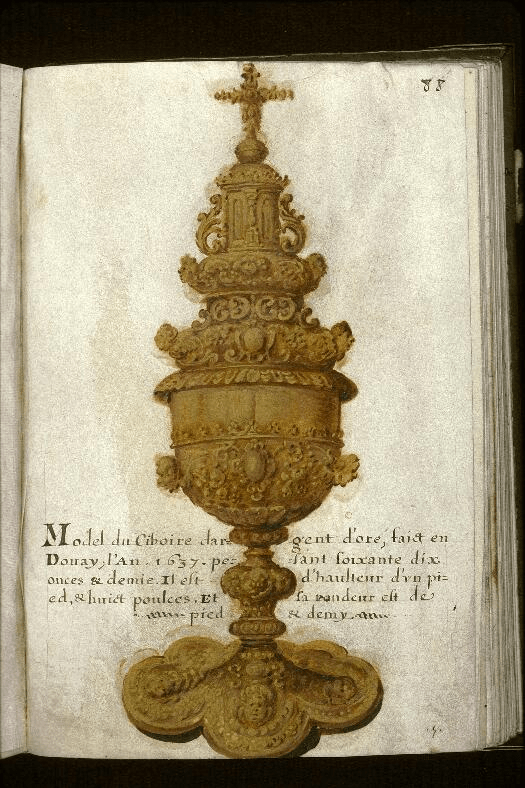 88
Model du Ciboire dar= gent d'oré, faict en
Douay, l'An . 1637. pe= sant soixante dix
onces & demie. Il est d'haulteur d'vn pi=
ed, & huict poulces. Et sa rondeur est de
pied & demy